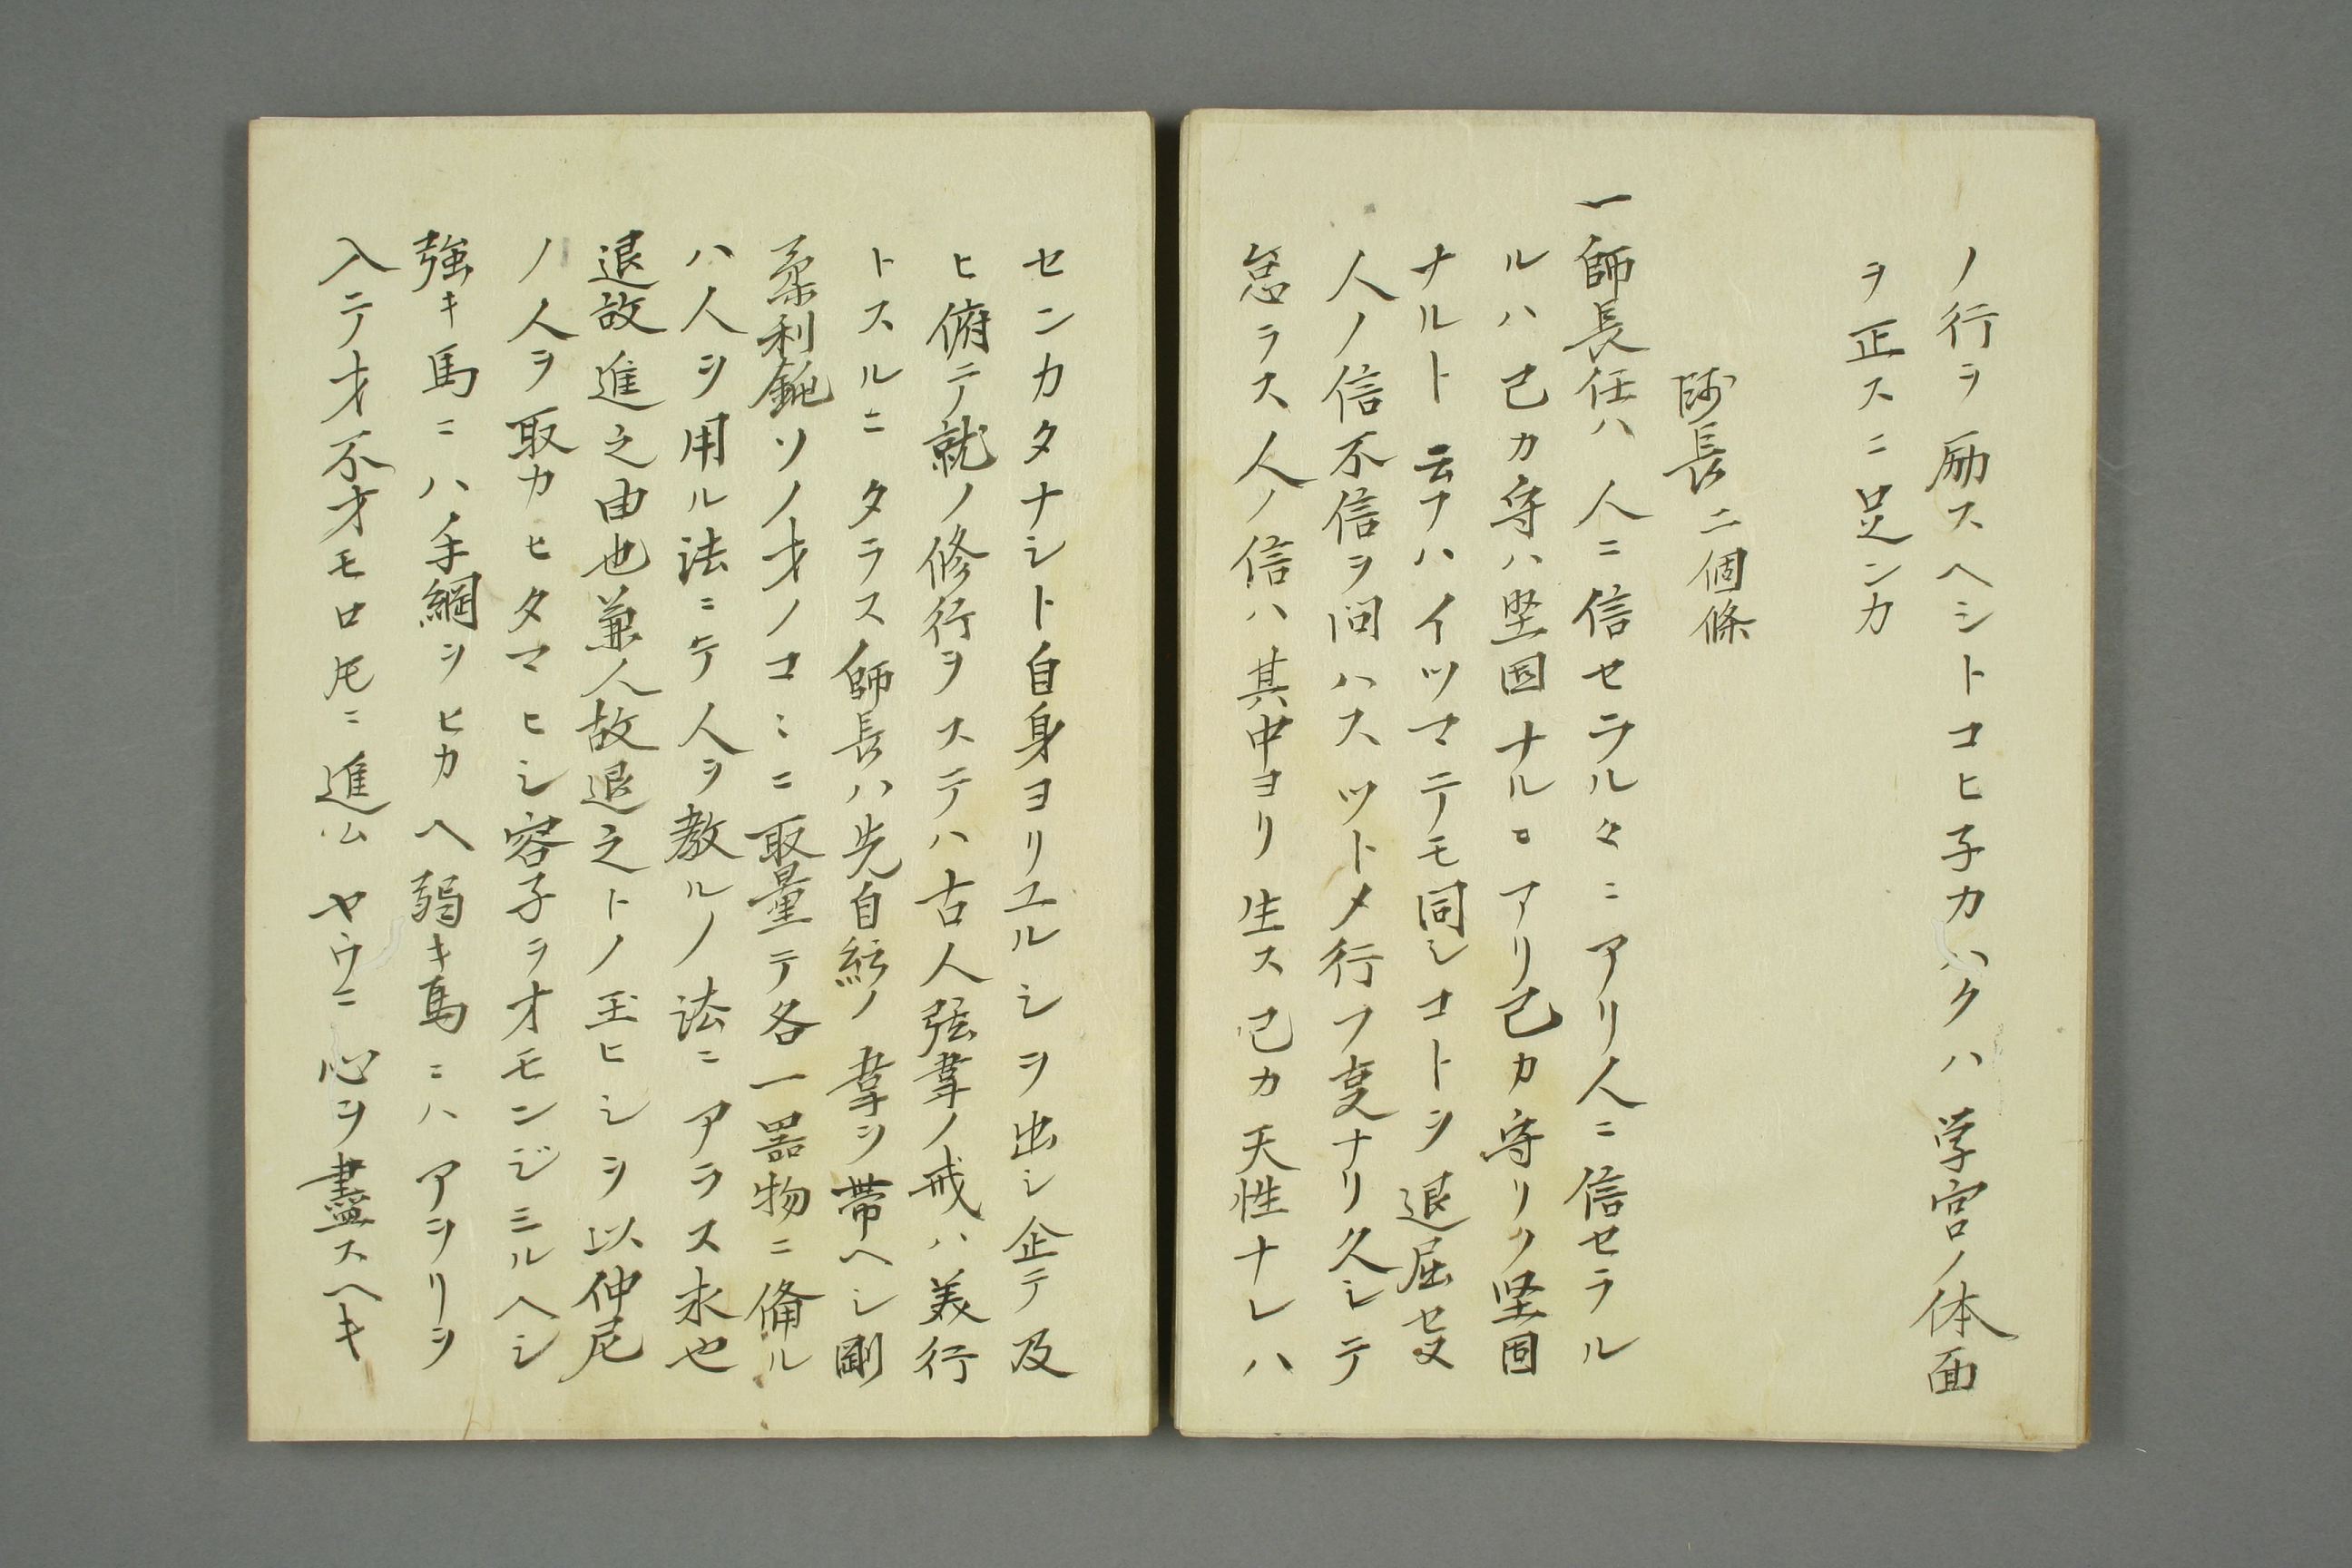 ノ行ヲ励スヘシトコヒ子カハクハ学宮ノ体面
ヲ正スニ足ンカ
師長二個條
一師長任ハ人ニ信セラル々ニアリ人ニ信セラル
ルハ己カ守ハ堅固ナルニアリ己カ守リノ堅固
ナルト云ナハイツマテモ同シコトヲ退屈セヌ
人ノ信不信ヲ問ハスツトメ行フ叓ナリ久シテ
怠ラス人ノ信ハ其中ヨリ生ス己カ天性ナレハ
センカタナシト自身ヨリユルシヲ出シ企テ及
ヒ俯テ就ノ修行ヲステハ古人弦韋ノ戒ハ美行
トスルニタラス師長ハ先自絃ノ韋ヲ帯ヘシ剛
柔利鈍ソノ才ノコミニ取量テ各一器物ニ備ル
ハ人ヲ用ル法ニケ人ヲ教ルノ法ニアラス求也
退故進之由也兼人故退之トノ玉ヒシヲ以仲尼
ノ人ヲ取カヒタマヒシ容子ヲオモンジミルヘシ
強キ馬ニハ手綱ヲヒカヘ弱キ馬ニハアヲリヲ
入テ才不才モロ𪜈ニ進ムヤウニ心ヲ盡スヘキ